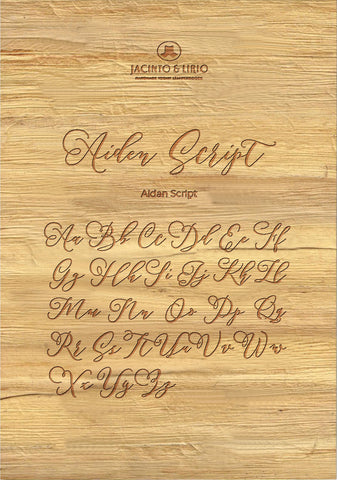 JACINTO & LIRIO
Aiden Script
Aidan Script
Aa Bb Cc Dd Ee Ff
Gg Hh Ii Jj Kk Ll
Mm Nn Oo Pp Qq
Rr Ss Tt Uu Vv Ww
Xx Yy Zz